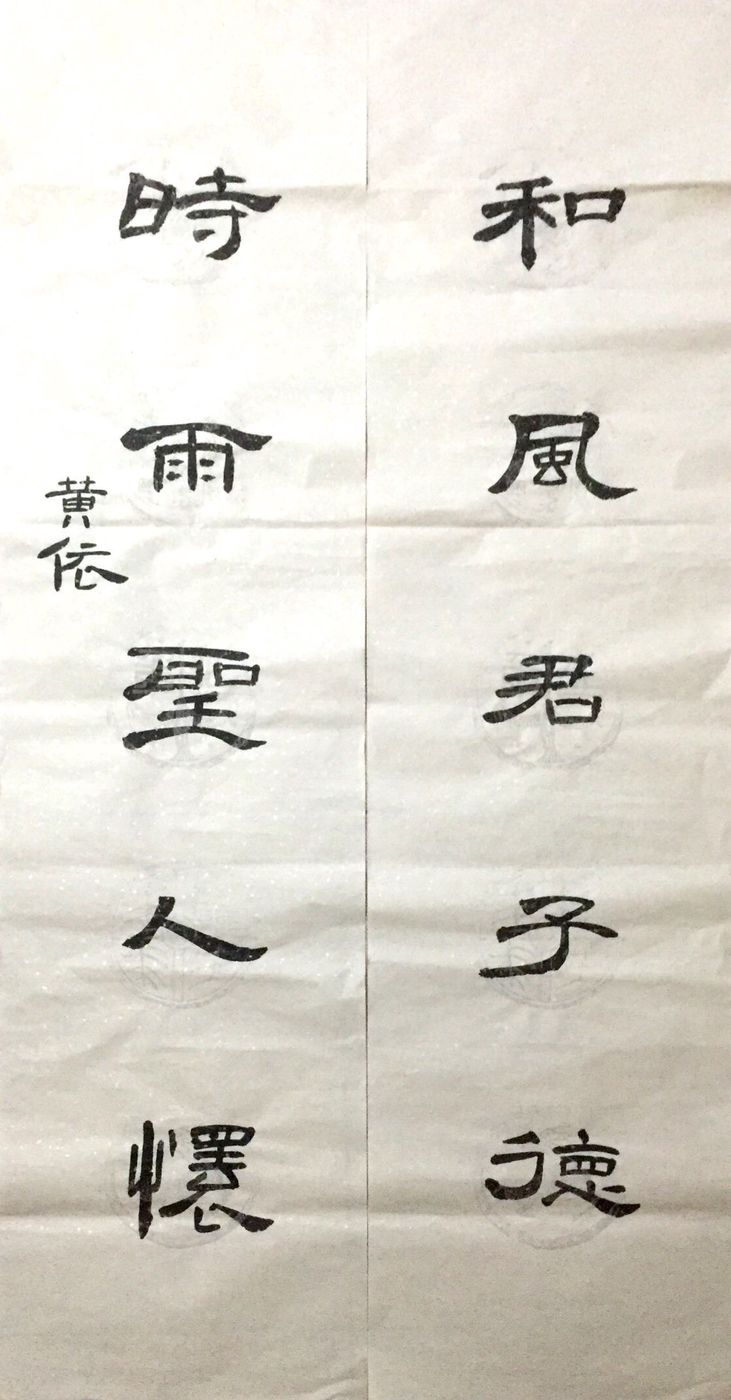 和風君子德
時雨聖人懷
黄依